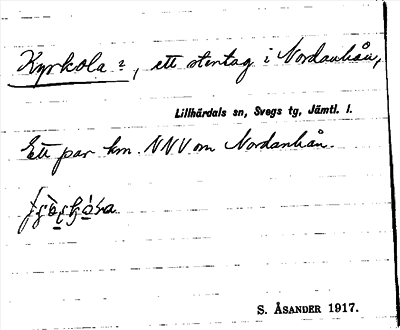 Kyrkola ?, ett stentag i Nordanhån,
Lillhärdals sn, Svegs tg, Jämtl. l.
Ett par km NNV om Nordanhån.
S. ÅSANDER 1917.